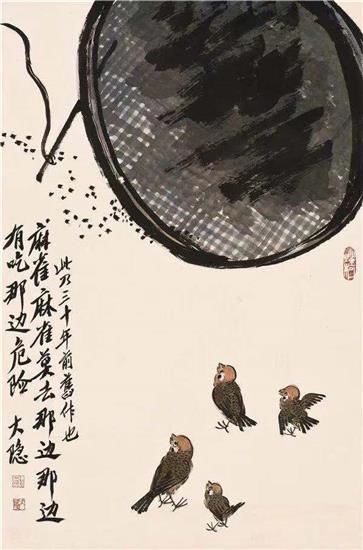 此乃三十年前舊作也
麻雀麻雀莫去那边那边
有吃那边危险 大隐